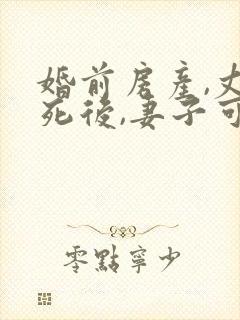 婚前房產,丈
死後,妻子可
零點寧少